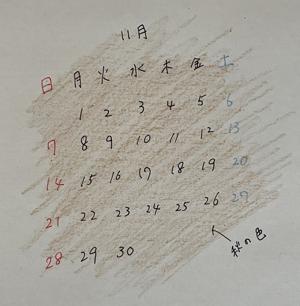 11月
日 月 火 水 木 金 土
1 2 3 4 5 6
7 8 9 10 11 12 13
14 15 16 17 18 19 20
21 22 23 24 25 26 27
28 29 30
秋の色